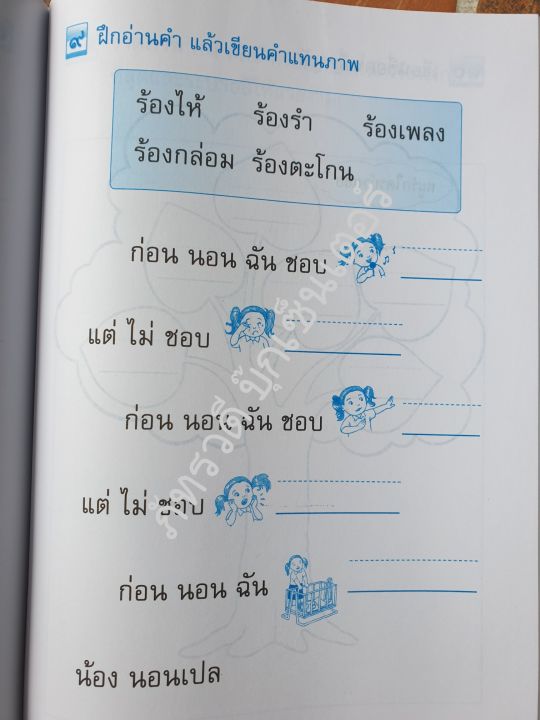 ๙ ฝึกอ่านคำ แล้วเขียนคำแทนภาพ
ร้องไห้ ร้องรำ ร้องเพลง
ร้องกล่อม ร้องตะโกน
ก่อน นอน ฉัน ชอบ
แต่ ไม่ ชอบ
ก่อน นอน ฉัน ชอบ
แต่ ไม่ ชอบ
ก่อน นอน ฉัน
น้อง นอนเปล
ภัทรวดี บุ๊กเซ็นเตอร์